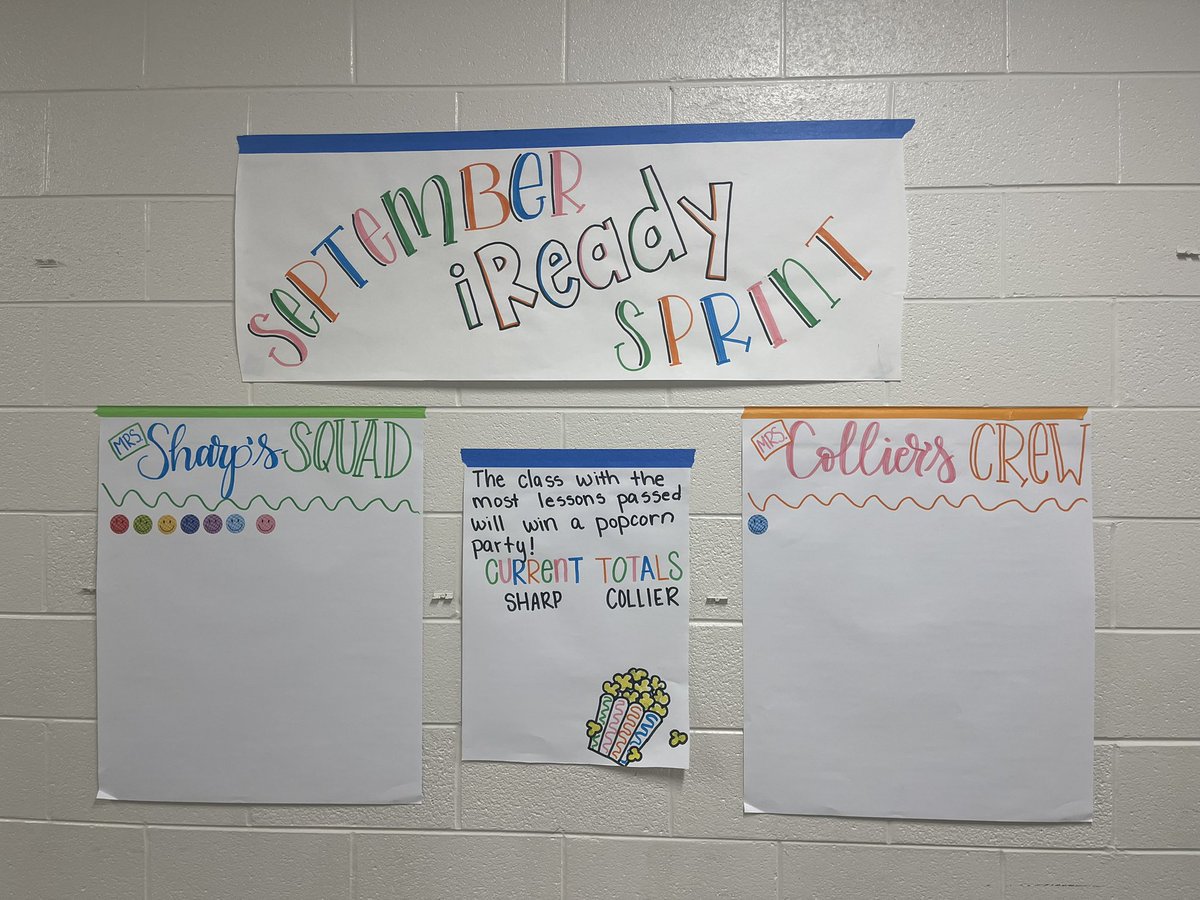 SEPTEMBER
iReady
SPRINT
MRS Sharp's SQUAD
The class with the
most lessons passed
will win a popcorn
party!
CURRENT TOTALS
SHARP COLLIER
MRS. Collier's CREW